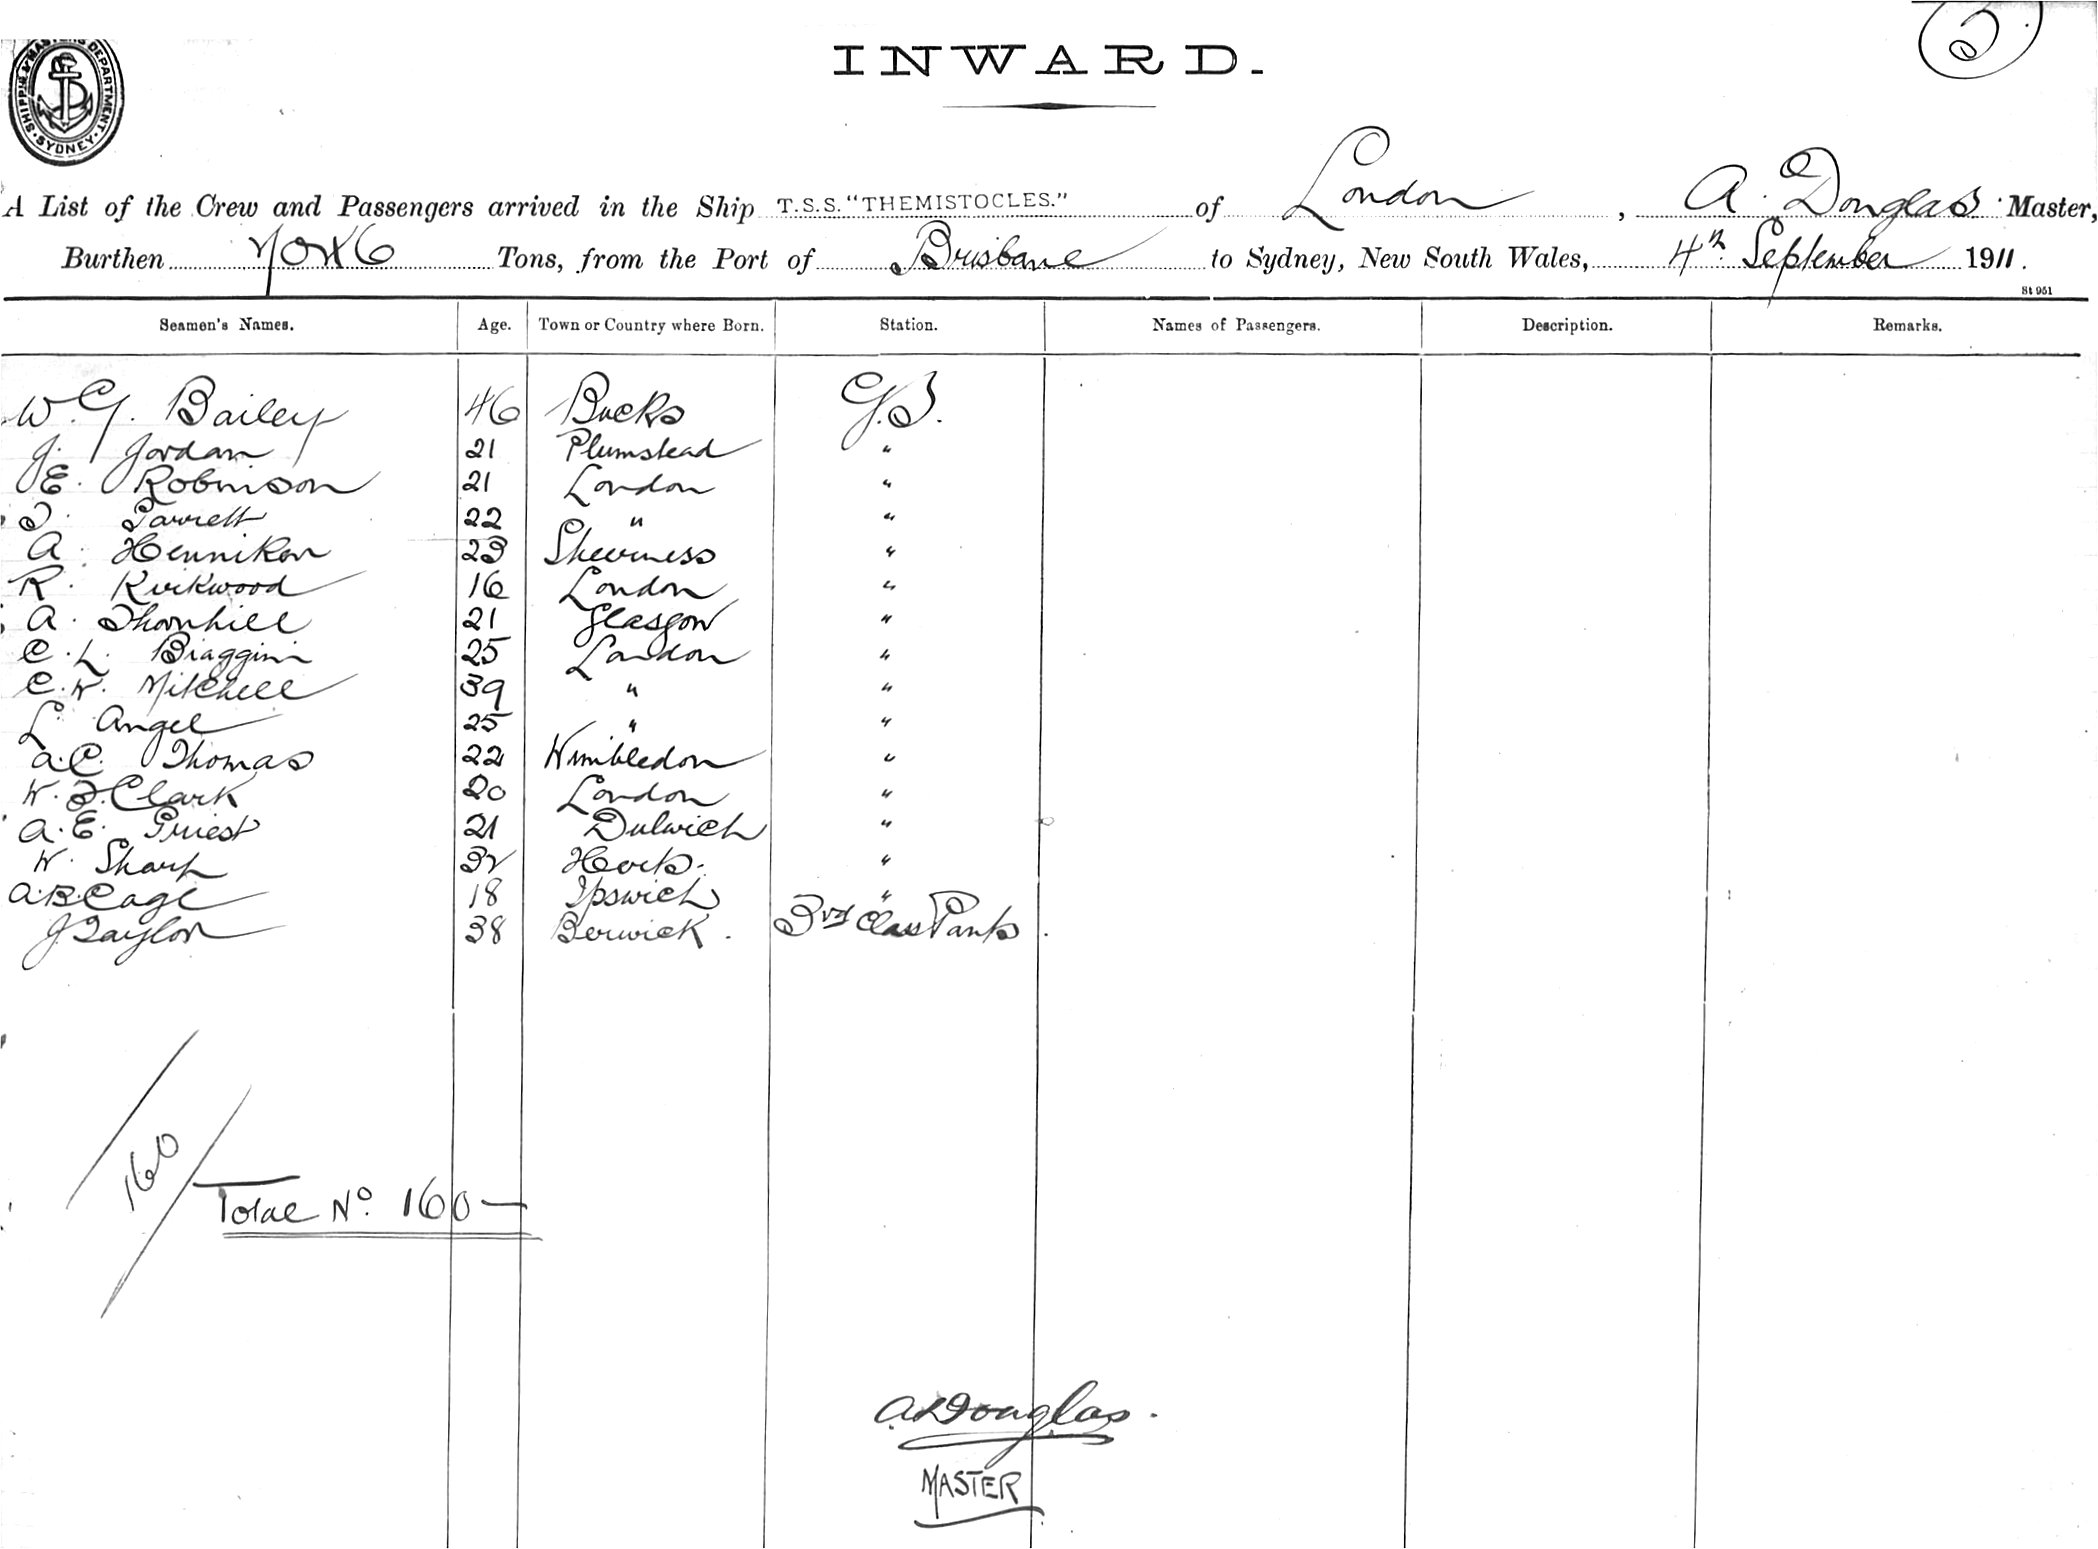 5
SHIPPING MASTERS DEPARTMENT. SYDNEY
INWARD.
A List of the Crew and Passengers arrived in the Ship T.S.S. "THEMISTOCLES." of London, A. Douglas Master,
Burthen 7046 Tons, from the Port of Brisbane to Sydney, New South Wales, 4th September 1911.
St 951
Seamen's Names. Age. Town or Country where Born. Station. Names of Passengers. Description. Remarks.
W. G. Bailey 46 Bucks G.S.
J. Jordan 21 Plumstead "
E. Robinson 21 London "
T. Parrett 22 " "
A. Henniken 23 Sheerness "
R. Kirkwood 16 London "
A. Thornhill 21 Glasgow "
C. L. Biaggini 25 London "
C. W. Mitchell 39 " "
L. Angel 25 " "
A. C. Thomas 22 Wimbledon "
W. J. Clark 20 London "
A. E. Priest 21 Dulwich "
W. Sharp 32 Herts. "
A. B. Cage 18 Ipswich "
J Taylor 38 Berwick. 3rd Class Pants
160
Total No. 160
A Douglas.
MASTER